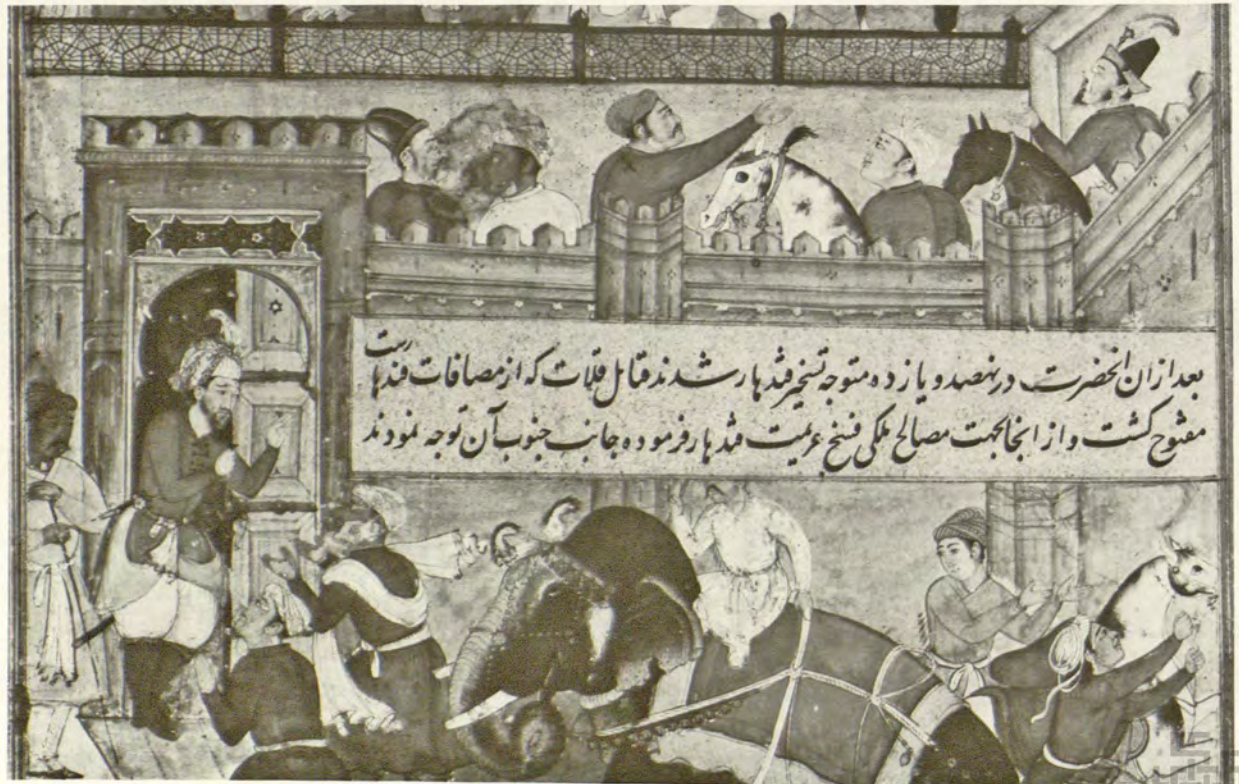 بعد ازان انحضرت در نهصد و یازده متوجه تسخیر قندهار شدند قتابل قلات که از مصافات قندهارست
مفتوح کشت و از انجا بجهت مصالح ملکی فسخ عزیمت قندهار فرموده جانب جنوب آن توجه نمودند